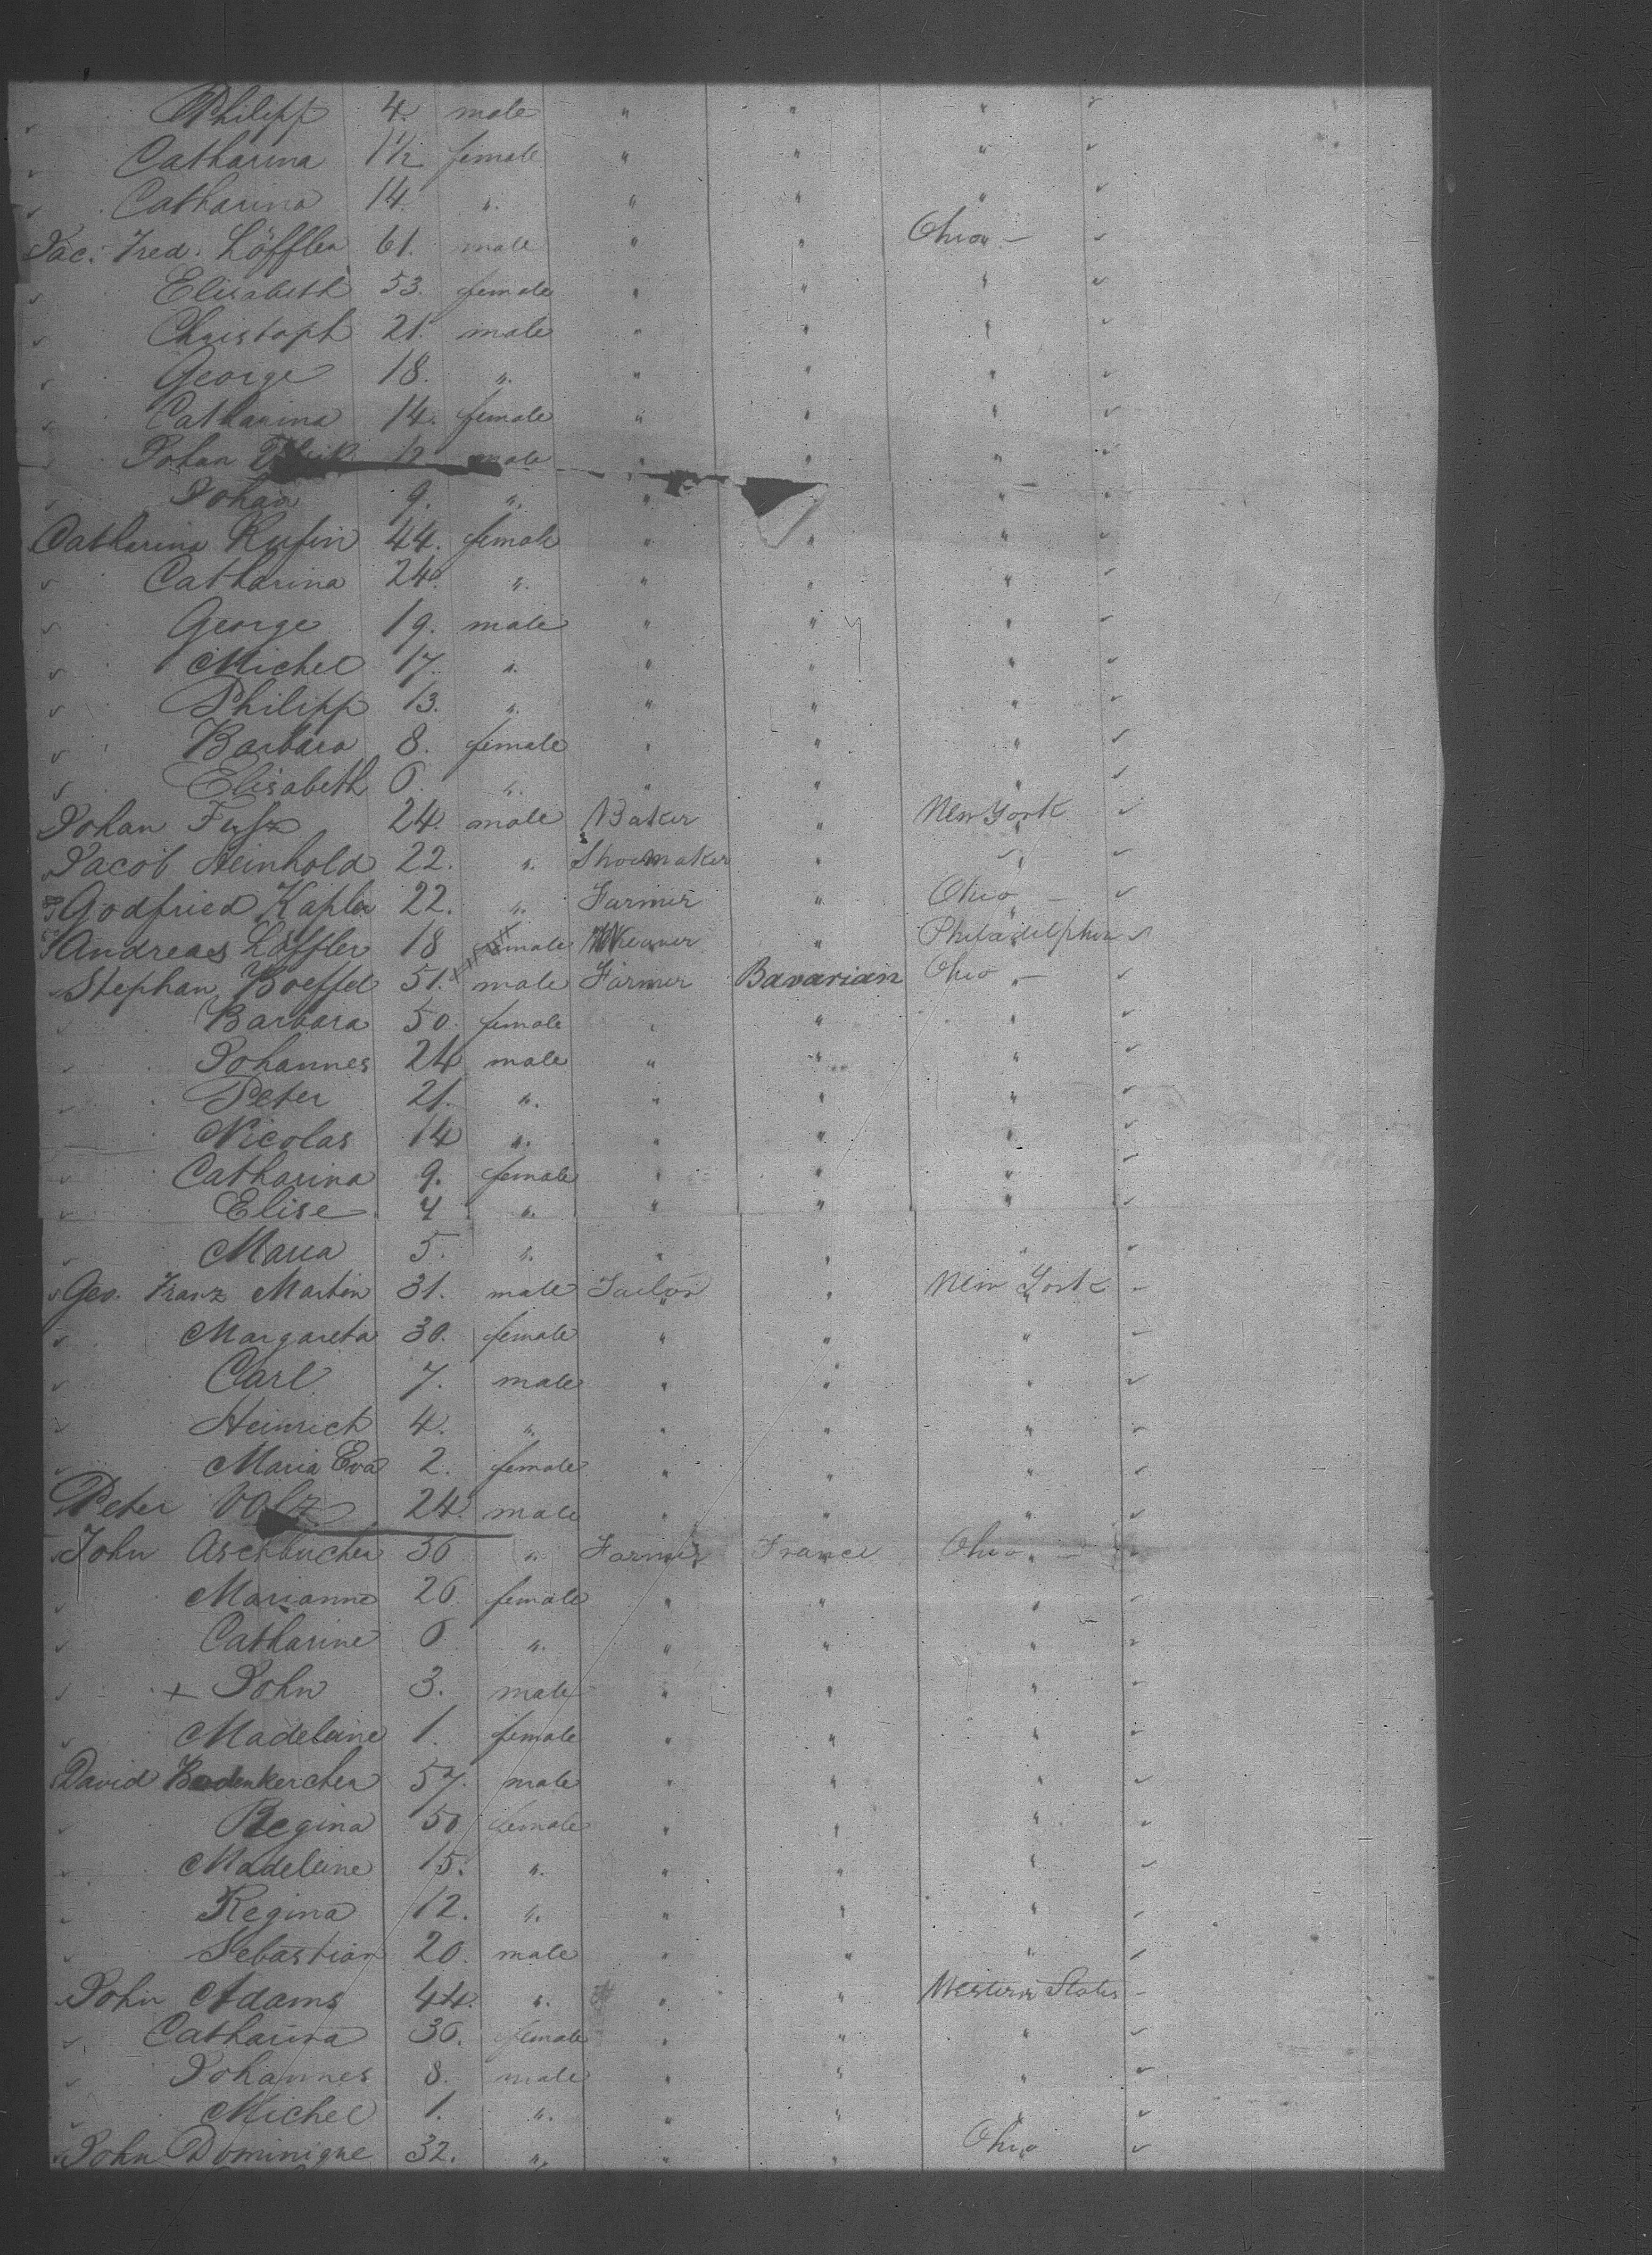 Philipp 4. male " " "
Catharina 1 1/2 female " " "
Catharina 14. " " " "
Jac. Fred. Löffler 61. male " " Ohio
Elisabeth 53. female " " "
Christoph 21. male " " "
George 18. " " " "
Catharina 14. female " " "
Johan 12 male " " "
Johan 9. " " "
Catharina Kufin 44. female " " "
Catharina 24. " " " "
George 19. male " " "
Michel 17. " " " "
Philipp 13. " " " "
Barbara 8. female " " "
Elisabeth 6. " " " "
Johan 24. male Baker " New York
Jacob Heinhold 22. " Shoemaker " "
Godfried Kapler 22. " Farmer " Ohio
Andreas Löffler 18 male Weaver " Philadelphia
Stephan Boeffel 51. male Farmer Bavarian Ohio
Barbara 50. female " " "
Johannes 24 male " " "
Peter 21. " " " "
Nicolas 14 " " " "
Catharina 9. female " " "
Elise 7 " " " "
Maria 5. " " " "
Geo. Franz Martin 31. male Tailor " New York
Margareta 30. female " " "
Carl 7. male " " "
Heinrich 4. " " " "
Maria Eva 2. female " " "
Peter Volz 24. male " " "
John Aschbucher 36 " Farmer France Ohio
Marianne 26. female " " "
Catharine 6 " " " "
+ John 3. male " " "
Madeleine 1. female " " "
David Bodenkercher 57. male " " "
Regina 50 female " " "
Madeleine 15. " " " "
Regina 12. " " " "
Sebastian 20. male " " "
John Adams 44. " " " Western States
Catharina 36. female " " "
Johannes 8. male " " "
Michel 1. " " " "
John Dominique 32. " " " Ohio